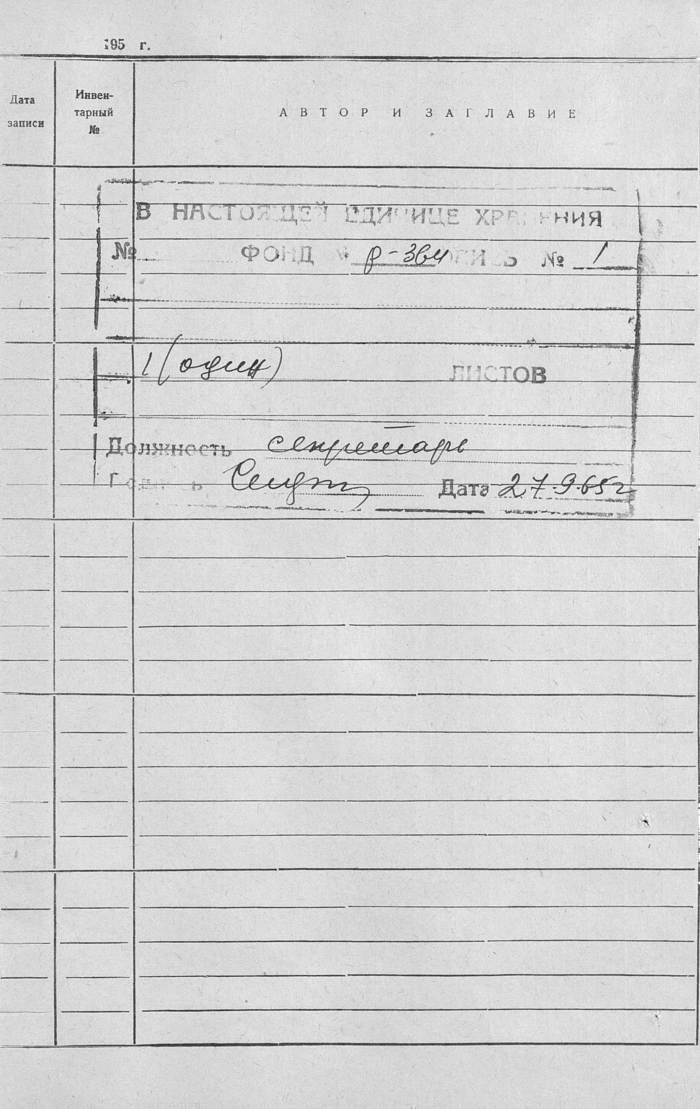 195 г.
Дата записи
Инвен-
тарный
№
АВТОР И ЗАГЛАВИЕ
В НАСТОЯЩЕЙ ЕДИНИЦЕ ХРАНЕНИЯ
№ ФОНД № р-364 ОПИСЬ № 1
1 (один) ЛИСТОВ
Должность секретарь
Дата 27.9.65г